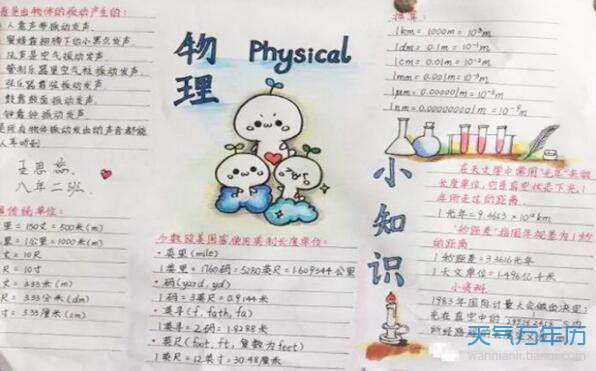 音是由物体的振动产生的:
人靠声带振动发声.
蜜蜂靠翅膀下的小黑点发声.
风声是空气振动发声.
管制乐器里空气柱振动发声.
弦乐器靠弦振动发声.
鼓靠鼓面振动发声.
钟靠钟振动发声.
是所有物体振动发出的声音都能
人耳听到
王思蕊
八年二班.
国传统单位:
里=150丈=500米(m)
里=1公里=1000米(m)
丈=10尺
尺=10寸
丈=3.33米(m)
尺=3.33分米(dm)
寸=3.33厘米(cm)
物理
Physical
少数欧美国家使用英制长度单位:
英里(mile)
1英里=1760码=5280英尺=1.609344公里
码(yard, yd)
1码=3英尺=0.9144米
英寻(f, fath, fm)
1英寻=2码=1.8288米
英尺(foot, ft, 复数为feet)
1英尺=12英寸=30.48厘米
换算:
1km=1000m=10³m
1dm=0.1m=10⁻¹m
1cm=0.01m=10⁻²m
1mm=0.001m=10⁻³m
1μm=0.000001m=10⁻⁶m
1nm=0.000000001m=10⁻⁹m
小知识
在天文学中常用"光年"来做
长度单位,它是真空状态下光1
年所走过的距离.
1光年=9.4653×10¹⁵m
"秒距差"指周年视差为1秒
的距离.
1秒距差=3.3616光年
1天文单位=1.496亿千米
小资料
1983年国际计量大会做出决定:
光在真空中的
天气万年历
wannianli.tianqi.com